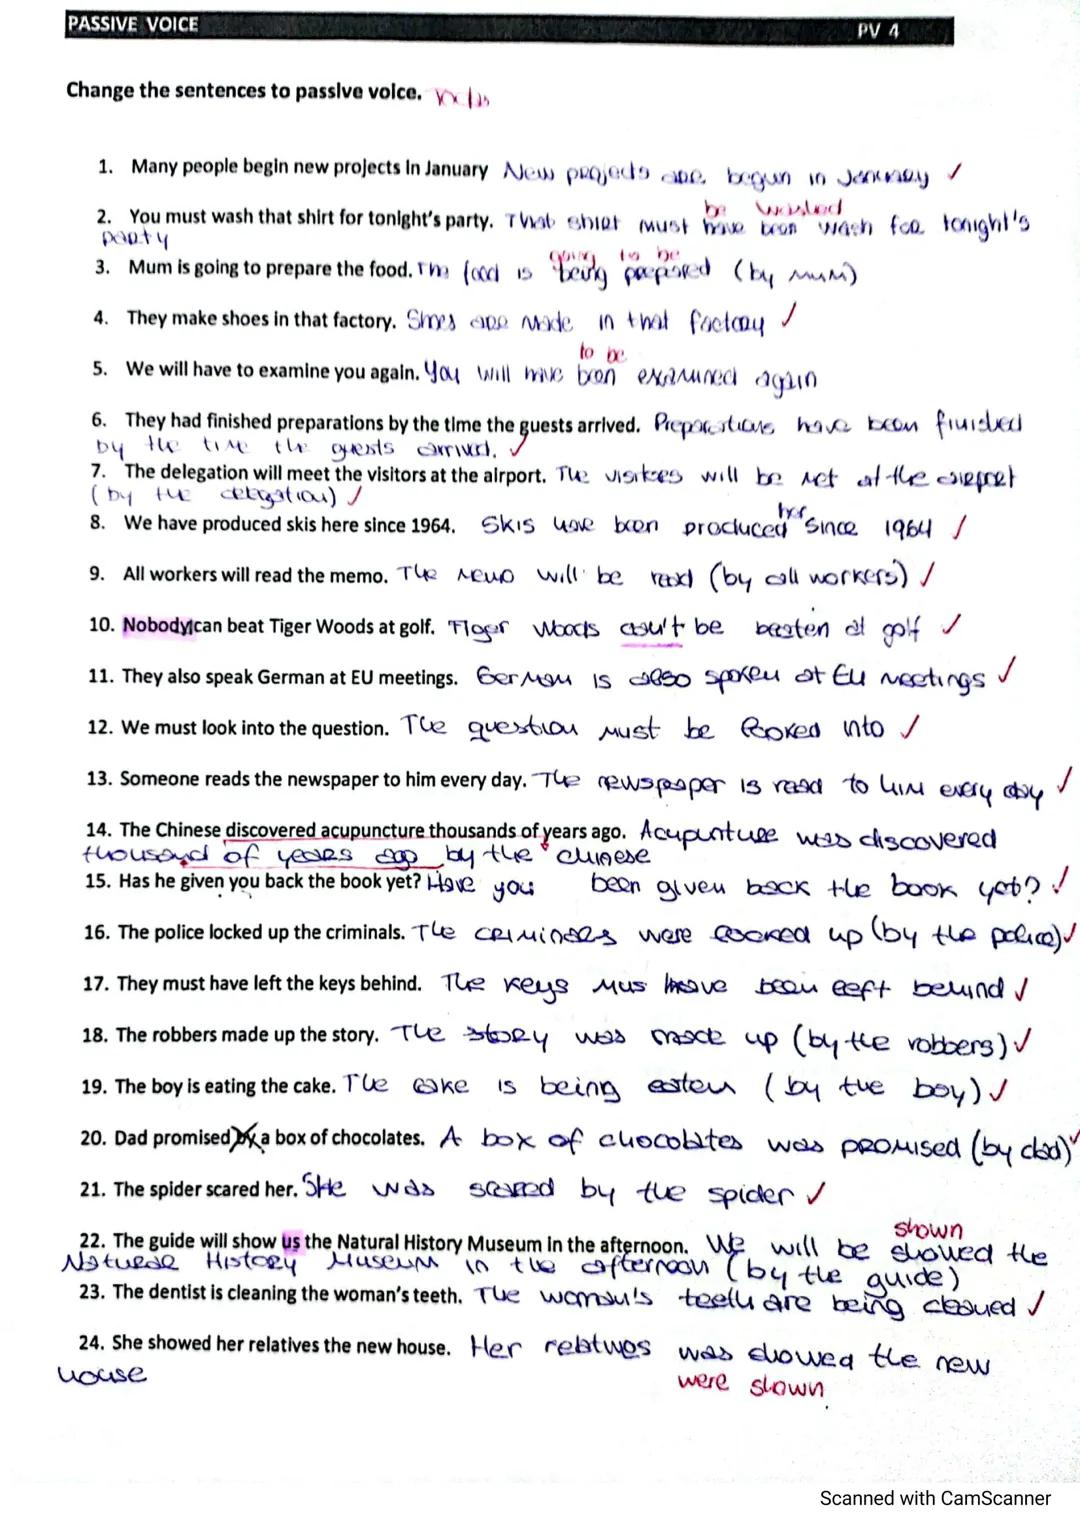 PASSIVE VOICE PV 4
Change the sentences to passive voice.
1. Many people begin new projects in January New projects are begun in January ✓
be washed
2. You must wash that shirt for tonight's party. That shirt must have been wash for tonight's
party
going to be
3. Mum is going to prepare the food. The food is being prepared (by mum)
4. They make shoes in that factory. Shoes are made in that factory ✓
to be
5. We will have to examine you again. You will have been examined again
6. They had finished preparations by the time the guests arrived. Preparations have been finished
by the time the guests arrived. ✓
7. The delegation will meet the visitors at the airport. The visitors will be met at the airport
(by the delegation) ✓
her
8. We have produced skis here since 1964. Skis have been produced since 1964 ✓
9. All workers will read the memo. The memo will be read (by all workers) ✓
10. Nobody can beat Tiger Woods at golf. Tiger Woods can't be beaten at golf ✓
11. They also speak German at EU meetings. German is also spoken at EU meetings ✓
12. We must look into the question. The question must be looked into ✓
13. Someone reads the newspaper to him every day. The newspaper is read to him every day ✓
14. The Chinese discovered acupuncture thousands of years ago. Acupunture was discovered
thousand of years ago by the chinese
15. Has he given you back the book yet? Have you been given back the book yet? ✓
16. The police locked up the criminals. The criminals were locked up (by the police) ✓
17. They must have left the keys behind. The keys mus have been left behind ✓
18. The robbers made up the story. The story was made up (by the robbers) ✓
19. The boy is eating the cake. The cake is being eaten (by the boy) ✓
20. Dad promised a box of chocolates. A box of chocolates was promised (by dad) ✓
21. The spider scared her. She was scared by the spider ✓
shown
22. The guide will show us the Natural History Museum in the afternoon. We will be showed the
Natural History Museum in the afternoon (by the guide)
23. The dentist is cleaning the woman's teeth. The woman's teeth are being cleaned ✓
24. She showed her relatives the new house. Her relatives was showed the new
house
were shown
Scanned with CamScanner